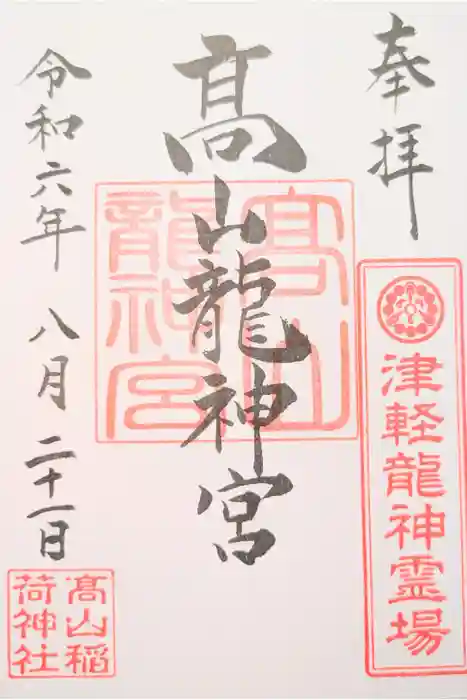 奉拝
津軽龍神霊場
髙山龍神宮
髙山
龍神宮
令和六年 八月 二十一日
髙山稲
荷神社